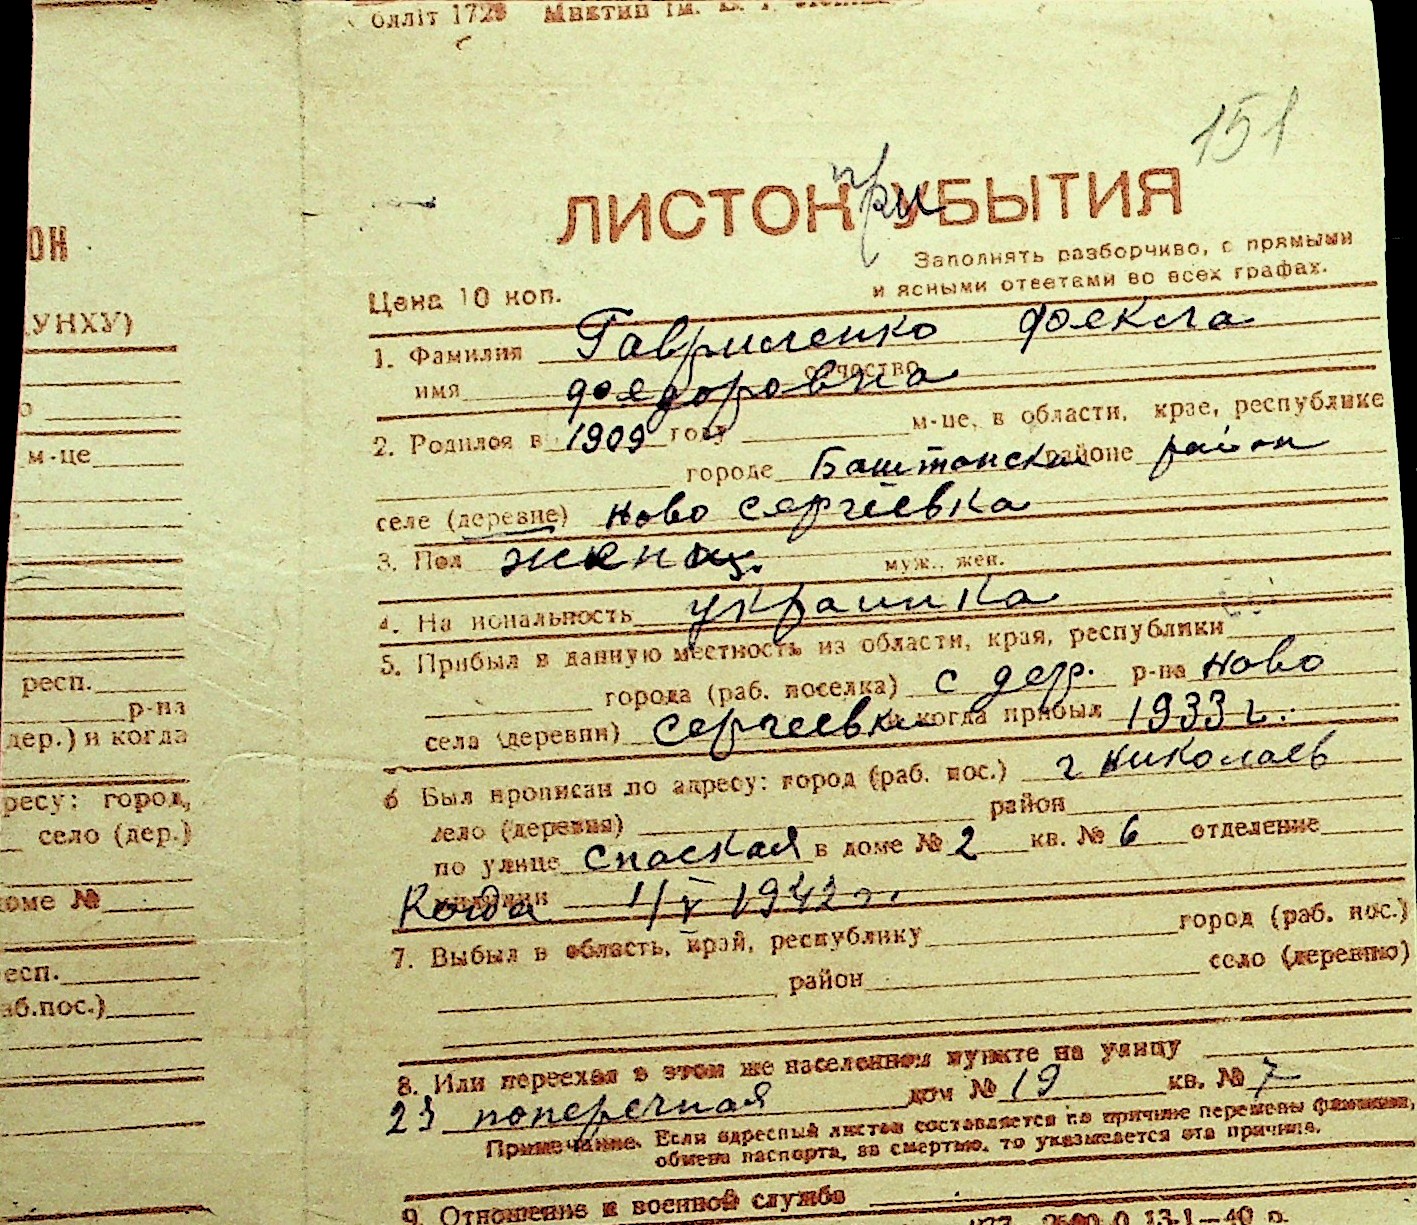 151
ЛИСТОК при УБЫТИЯ
Заполнять разборчиво, с прямыми
и ясными ответами во всех графах.
Цена 10 коп.
1. Фамилия Гавриленко Фекла
имя Федоровна отчество
2. Родился в 1909 году м-це, в области, крае, республике
городе Баштонский районе район
селе (деревне) Ново Сергеевка
3. Пол женщ. муж., жен.
4. Национальность украинка
5. Прибыл в данную местность из области, края, республики
города (раб. поселка) с дер. р-на Ново
села (деревни) Сергеевки и когда прибыл 1933 г.
6 Был прописан по адресу: город (раб. пос.) г Николаев
село (деревня) район
по улице Спаская в доме № 2 кв. № 6 отделение
милиции Когда 4/V 1942 г.
7. Выбыл в область, край, республику город (раб. пос.)
район село (деревню)
8. Или переехал в этом же населенном пункте на улицу
23 поперечная дом № 19 кв. № 7
Примечание. Если адресный листок составляется по причине перемены фамилии,
обмена паспорта, за смертью, то указывается эта причина.
9. Отношение к военной службе
ОН
(УНХУ)
о
м-це
респ.
р-на
дер.) и когда
ресу: город,
село (дер.)
доме №
респ.
аб.пос.)